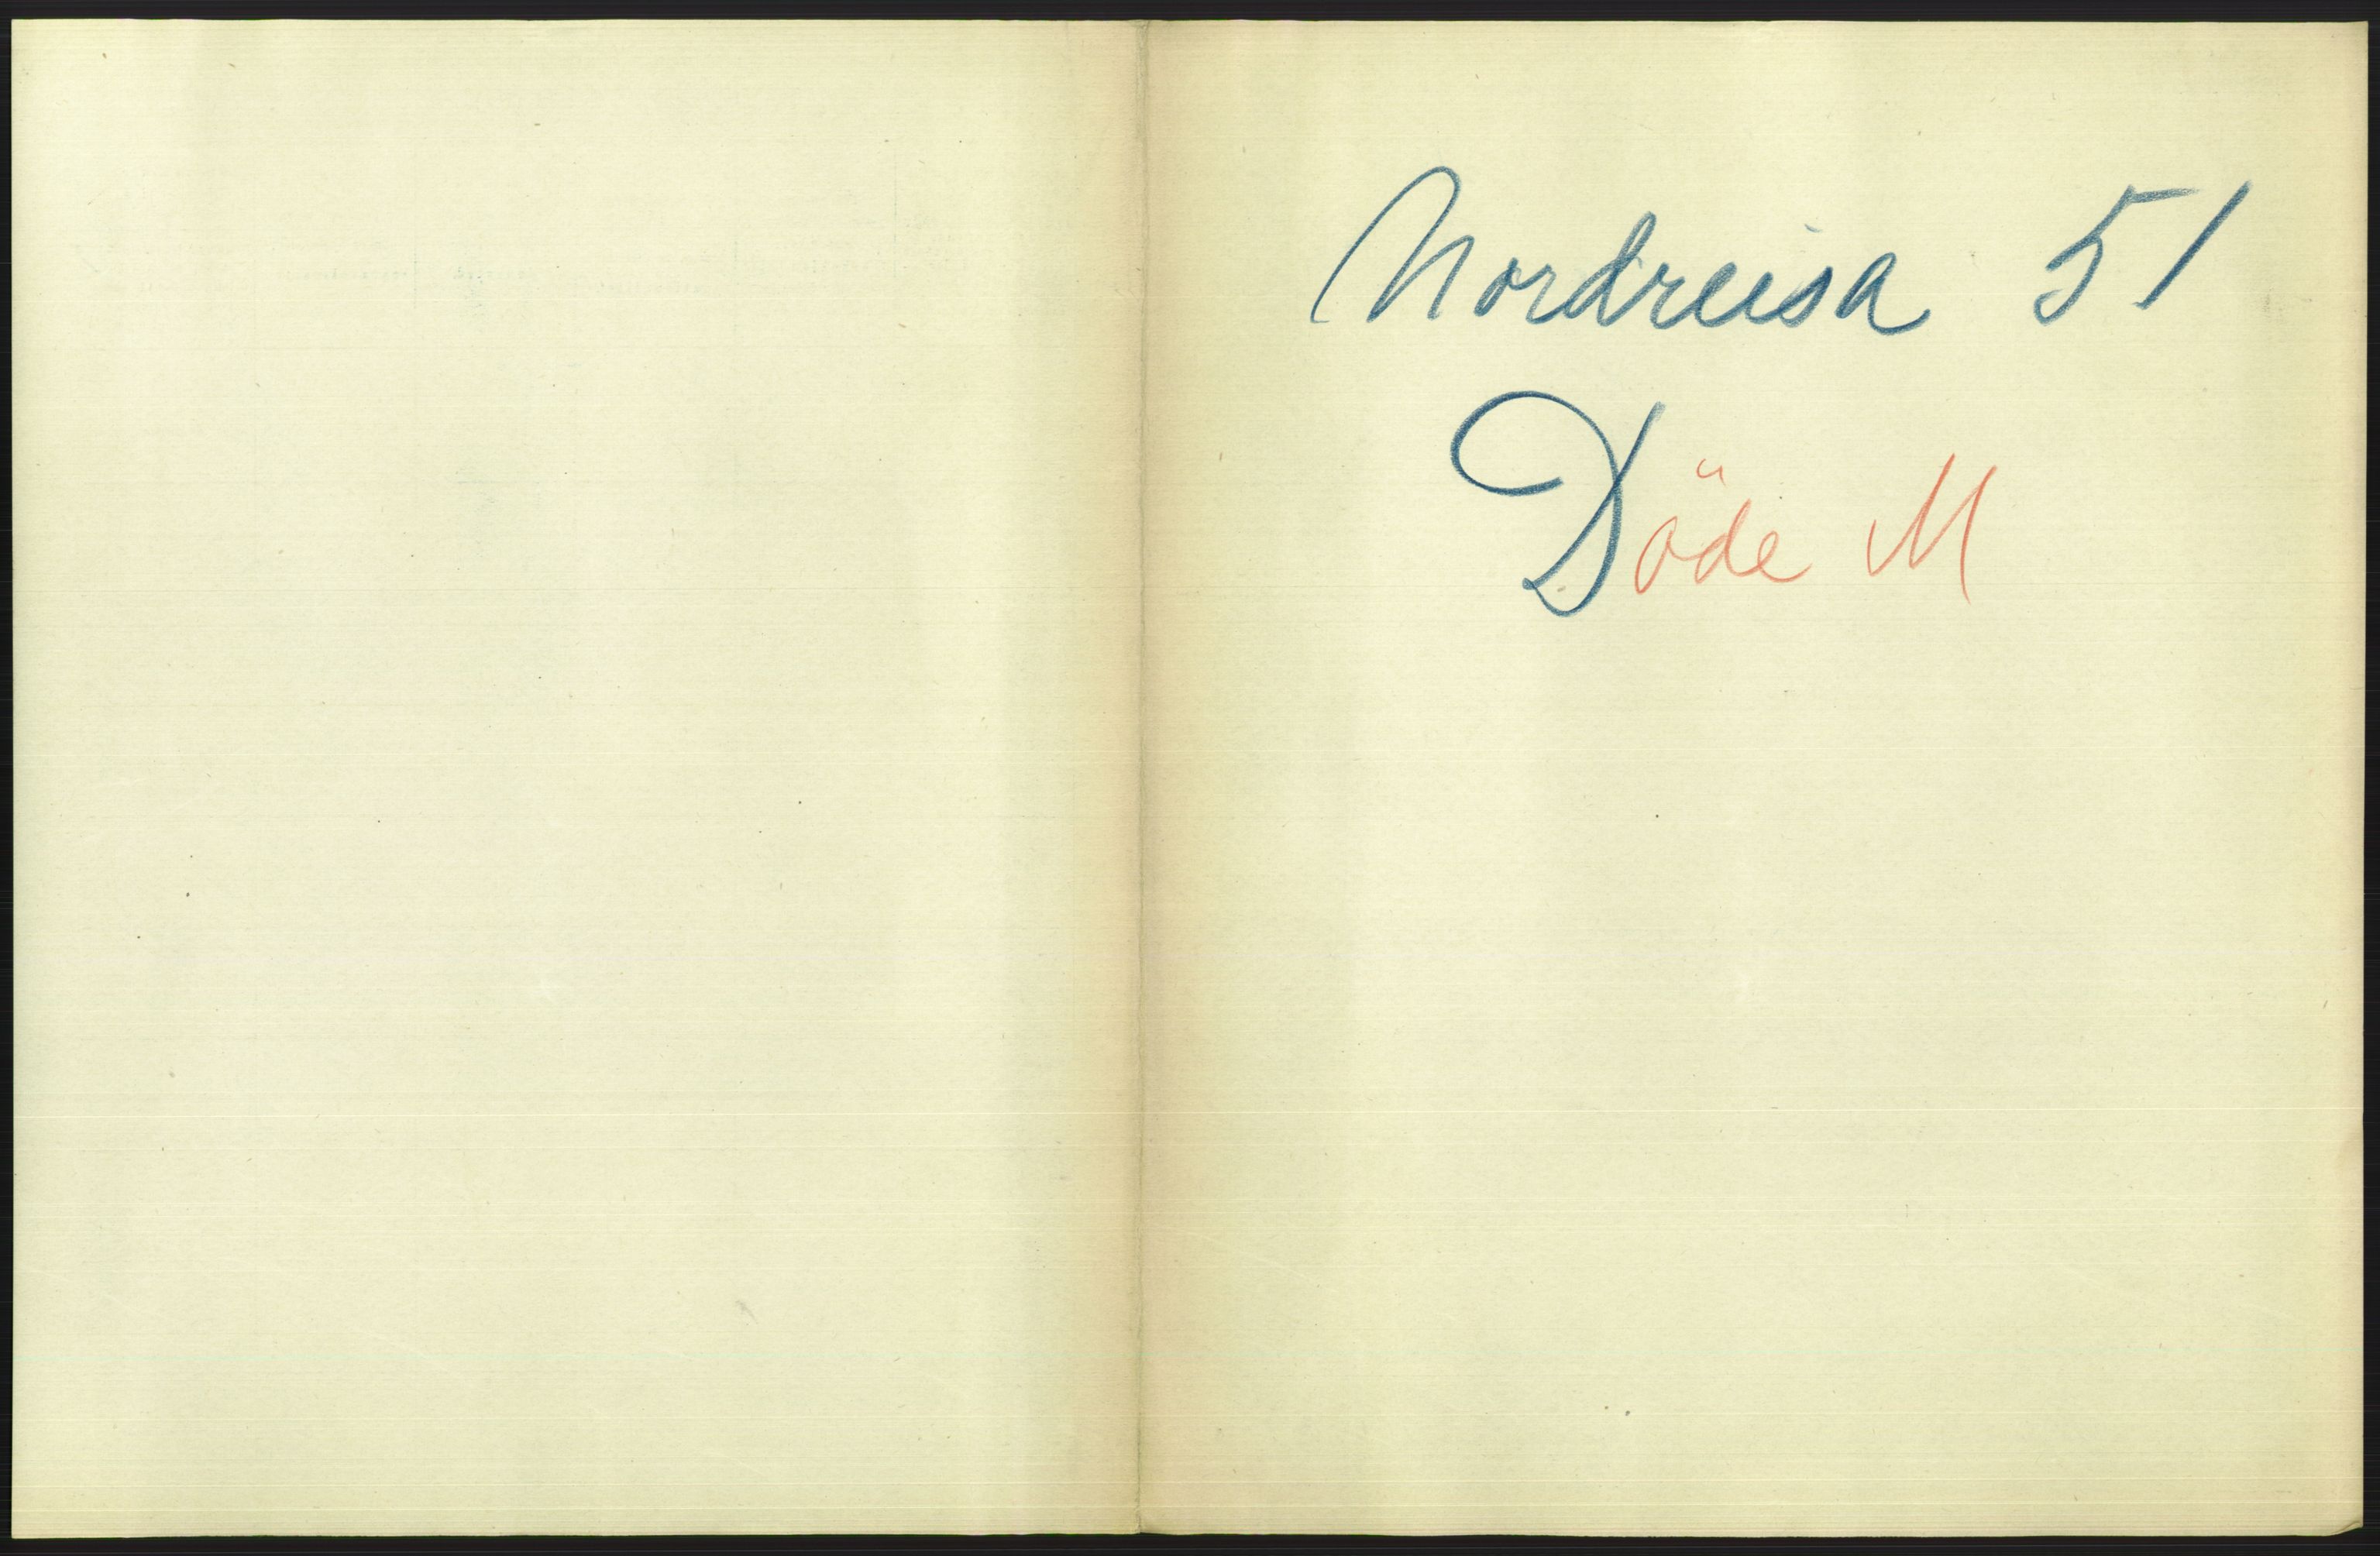 Nordreisa 51
Döde M